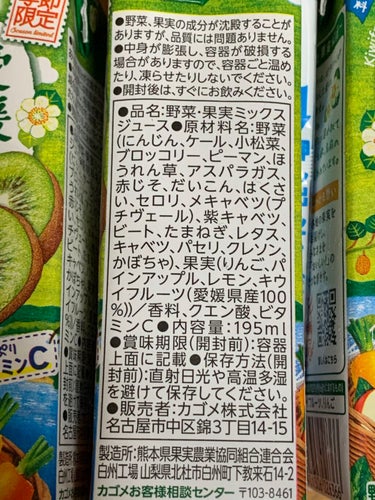 ●野菜、果実の成分が沈殿することが
ありますが、品質には問題ありません。
●中身が膨張し、容器が破損する
場合がありますので、容器ごと温め
たり、凍らせたりしないでください。
●開封後は、すぐにお飲みください。
●品名:野菜・果実ミックス
ジュース●原材料名:野菜
(にんじん、ケール、小松菜、
ブロッコリー、ピーマン、ほ
うれん草、アスパラガス、
赤じそ、だいこん、はくさ
い、セロリ、メキャベツ(プ
チヴェール)、紫キャベツ、
ビート、たまねぎ、レタス、
キャベツ、パセリ、クレソン、
かぼちゃ)、果実(りんご、パ
インアップル、レモン、キウ
イフルーツ(愛媛県産100
%))/香料、クエン酸、ビタ
ミンC●内容量:195ml
●賞味期限(開封前):容器
上面に記載●保存方法(開
封前):直射日光や高温多湿
を避けて保存してください。
●販売者:カゴメ株式会社
名古屋市中区錦3丁目14-15
製造所:熊本県果実農業協同組合連合会
白州工場 山梨県北杜市白州町下教来石14-2
カゴメお客様相談センター 〒103-8461
限定
Season limited
ミンC